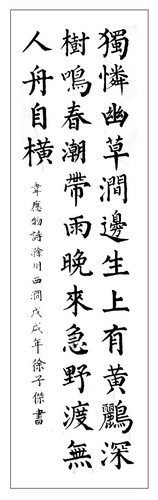 獨憐幽草澗邊生上有黃鸝深
樹鳴春潮帶雨晚來急野渡無
人舟自橫
韋應物詩滁州西澗戊戌年徐子傑書